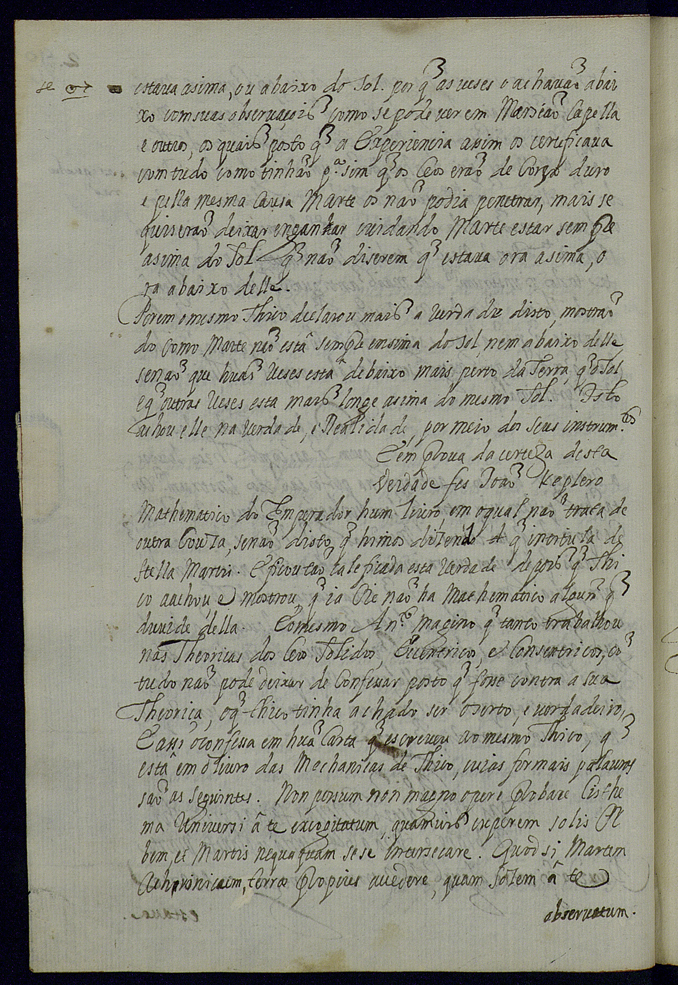 se ♂
estaua asima, ou abaixo do Sol. por q̃ as ueses o achauão abai
xo com suas obseruaçois como se pode uer em Marsião Capella
e outros, os quais posto q̃ a Experiencia asim os certificaua
com tudo como tinhão p.ª sim q̃ os Ceos erão de Corpo duro
e pella mesma Causa Marte os não podia penetrar, mais se
quiserão deixar enganar cuidando Marte estar sempre
asima do Sol q̃ não diserem q̃ estaua ora asima, o
ra abaixo delle.
Porem o mesmo Thico declarou mais a uerdade disto, mostrão
do como Marte não está sempre ensima do Sol, nem abaixo delle
senão que huãs ueses está debaixo mais perto da Terra, q̃ o Sol
e q̃ outras ueses esta mais longe asima do mesmo Sol. Isto
achou elle na uerdade, e Realidade, por meio dos seus instrum.tos
E em proua da certeza desta
Verdade fes Joaõ Keplero
Mathematico do Emperador hum liuro em o qual não trata de
outra Couza, senão disto, q̃ himos dizendo q̃ intitula de
stella Martis. E ficou tão teficada esta uerdade depois q̃ Thi
co a achou e mostrou, q̃ ia oie não ha Mathematico algum q̃
duuide della. E o mesmo An.to Magino q̃ tanto trabalhou
nas Theoricas dos Ceos Solidos, Excentricos, e Consentricos, cõ
tudo não pode deixar de Confesar posto q̃ fose contra a sua
Theorica, o q̃ Thico tinha achado ser certo, e uerdadeiro,
E asi o confesa em huã Carta q̃ escreueu ao mesmo Thico, q̃
está em o liuro das Mechanicas de Thico, cuias formais palauras
são as seguintes. Non possum non magno opere Probare Cisthe
ma Uniuersi à te excogitatum, quamuis experem solis Or
bem, et Martis nequaquam sese intersecare. Quod si Martem
Achronicum, terræ Propius accedere, quam Solem à te
obseruatum.